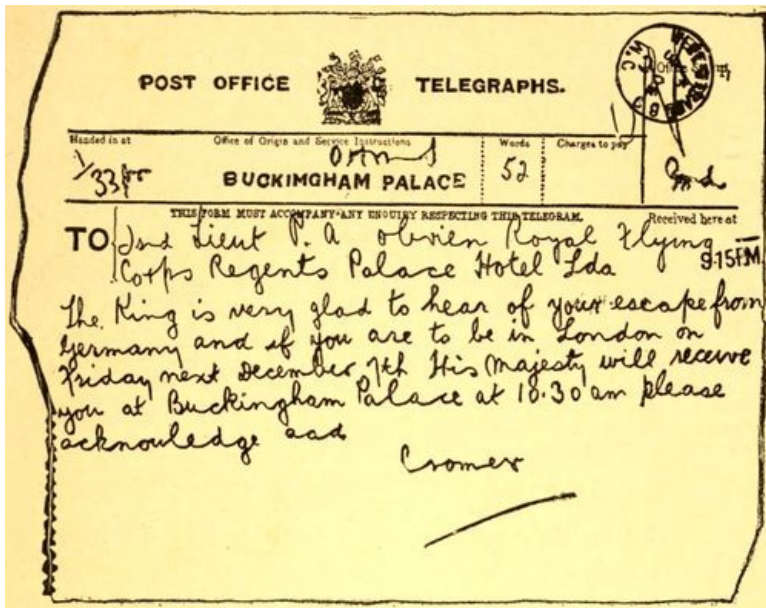 POST OFFICE TELEGRAPHS.
Handed in at Office of Origin and Service Instructions Words Charges to pay
BUCKIMGHAM PALACE 52
THIS FORM MUST ACCOMPANY ANY ENQUIRY RESPECTING THIS TELEGRAM. Received here at
TO 2nd Lieut P. A obrien Royal Flying
Corps Regents Palace Hotel Lda 9.15PM
The King is very glad to hear of your escape from
Germany and if you are to be in London on
Friday next December 7th His Majesty will receive
you at Buckingham Palace at 10.30 am please
acknowledge aad
Cromer